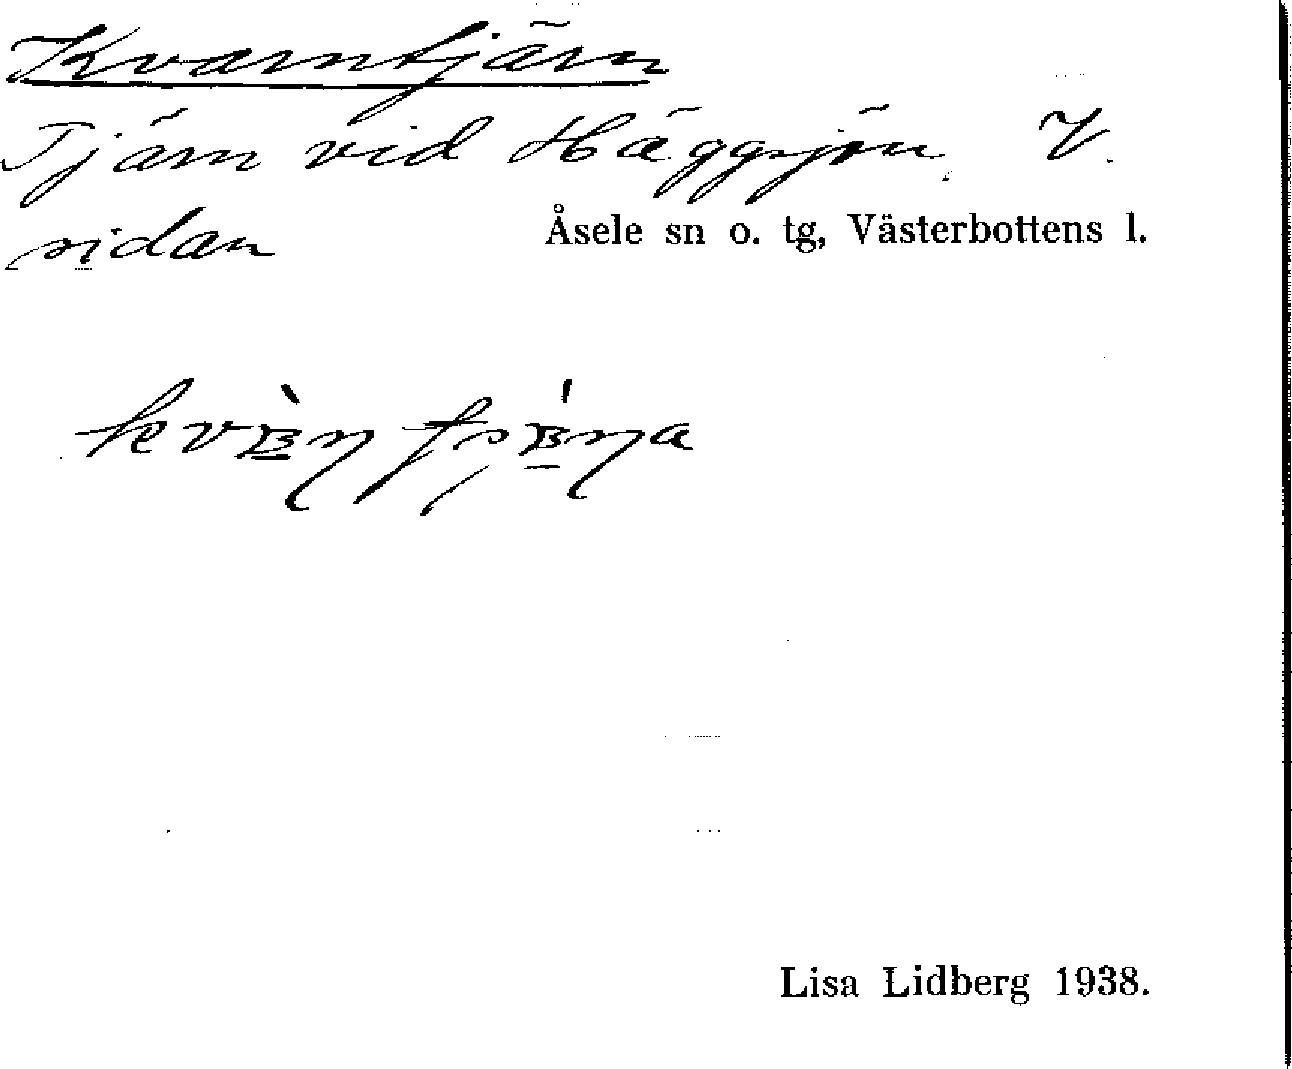 Kvarntjärn
Tjärn vid Häggsjön. V.
sidan
Åsele sn o. tg, Västerbottens l.
Lisa Lidberg 1938.